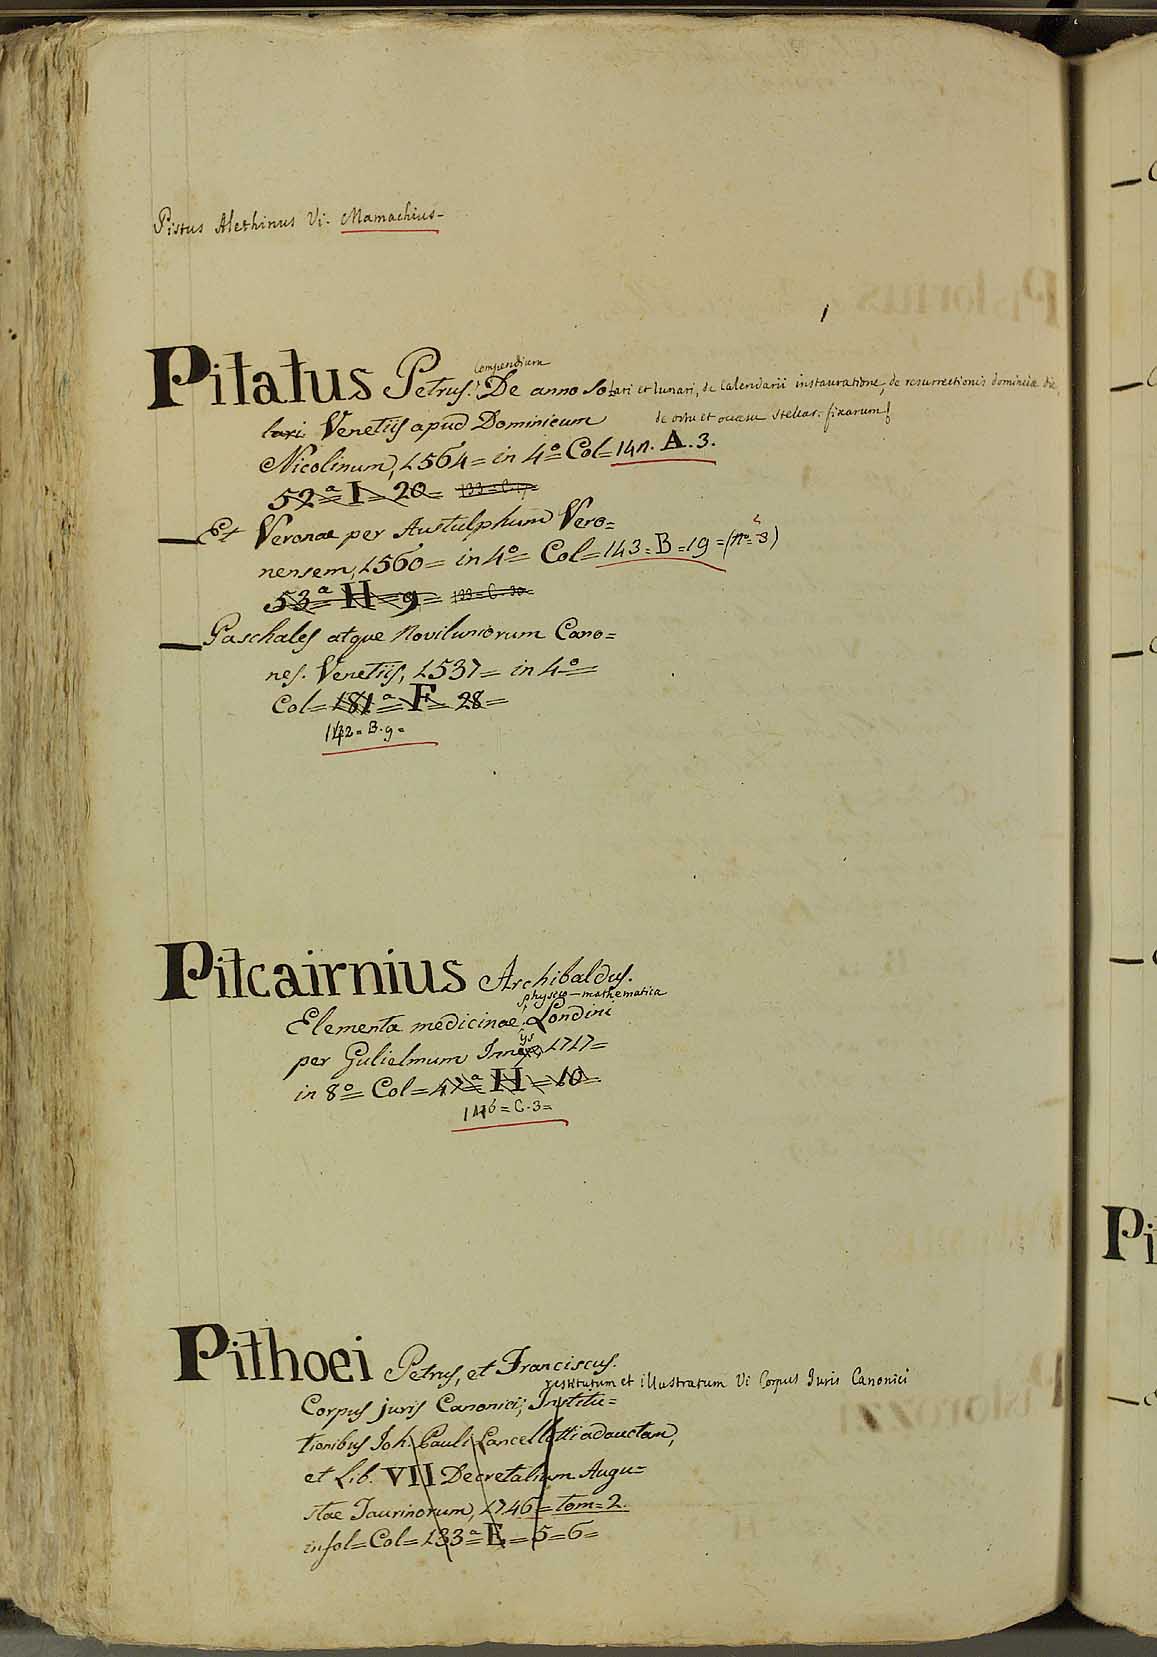 Pistus Alethinus Vi. Mamachius-
Pitatus Petrus. Compendium De anno So lari et lunari, de Calendarii instauratione, de resurrectionis dominicæ die
lari Venetiis apud Dominicum de ortu et occasu stellar. fixarum
Nicolinum, 1564= in 4º Col= 141. A. 3.
52ª I 20=
Et Veronae per Austulphum Vero=
nensem, 1560= in 4º= Col= 143= B=19=(nº= 3)
53ª= H=9=
Paschales atque Noviluniorum Cano=
nes. Venetiis, 1537= in 4º=
Col= 181ª= F= 28=
142= B. 9=
Pitcairnius Archibaldus.
physico-mathematica
Elementa medicinae; Londini
per Gulielmum Innys, 1717=
in 8º= Col= 47ª= H=10=
146= C. 3=
Pithoei Petrus, et Franciscus.
restitutum et illustratum Vi Corpus Juris Canonici
Corpus juris Canonici; Institu=
tionibus Joh. Pauli Lancellotti adauctam,
et Lib. VII Decretalium Augu=
stae Taurinorum, 1746= tom= 2.
in fol= Col= 133ª= E= 5=6=
Pi